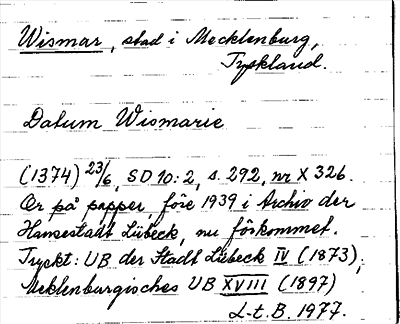 Wismar, stad i Mecklenburg,
Tyskland.
Datum Wismarie
(1374) 23/6, SD 10:2, s. 292, nr X 326.
Or på papper, före 1939 i Archiv der
Hansestadt Lübeck, nu förkommet.
Tryckt: UB der Stadt Lübeck IV (1873),
Mecklenburgisches UB XVIII (1897)
L-t. B. 1977.